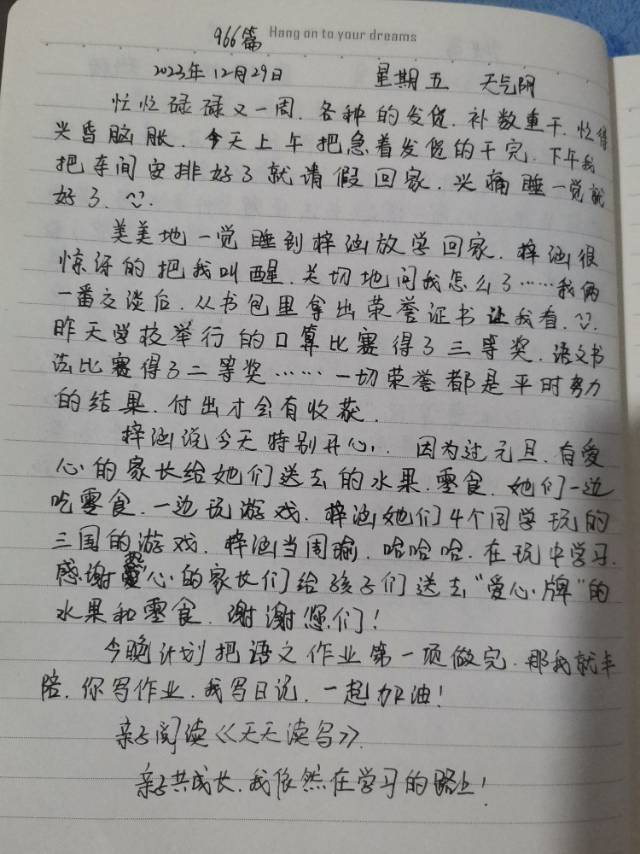 966篇 Hang on to your dreams
2023年12月29日 星期五 天气阴
忙忙碌碌又一周.各种的发货.补数重干.忙得
头昏脑胀.今天上午把急着发货的干完.下午我
把车间安排好了就请假回家.头痛睡一觉就
好了.
美美地一觉睡到梓涵放学回家.梓涵很
惊讶的把我叫醒.关切地问我怎么了……我俩
一番交谈后.从书包里拿出荣誉证书让我看.
昨天学校举行的口算比赛得了三等奖.语文书
法比赛得了二等奖……一切荣誉都是平时努力
的结果.付出才会有收获.
梓涵说今天特别开心.因为过元旦.有爱
心的家长给她们送去的水果.零食.她们一边
吃零食.一边玩游戏.梓涵她们4个同学玩的
三国的游戏.梓涵当周瑜.哈哈哈.在玩中学习.
感谢爱心的家长们给孩子们送去"爱心牌"的
水果和零食.谢谢您们!
今晚计划把语文作业第一项做完.那我就
陪.你写作业.我写日记.一起加油!
亲子阅读《天天读鸟》.
亲子共成长.我依然在学习的路上!